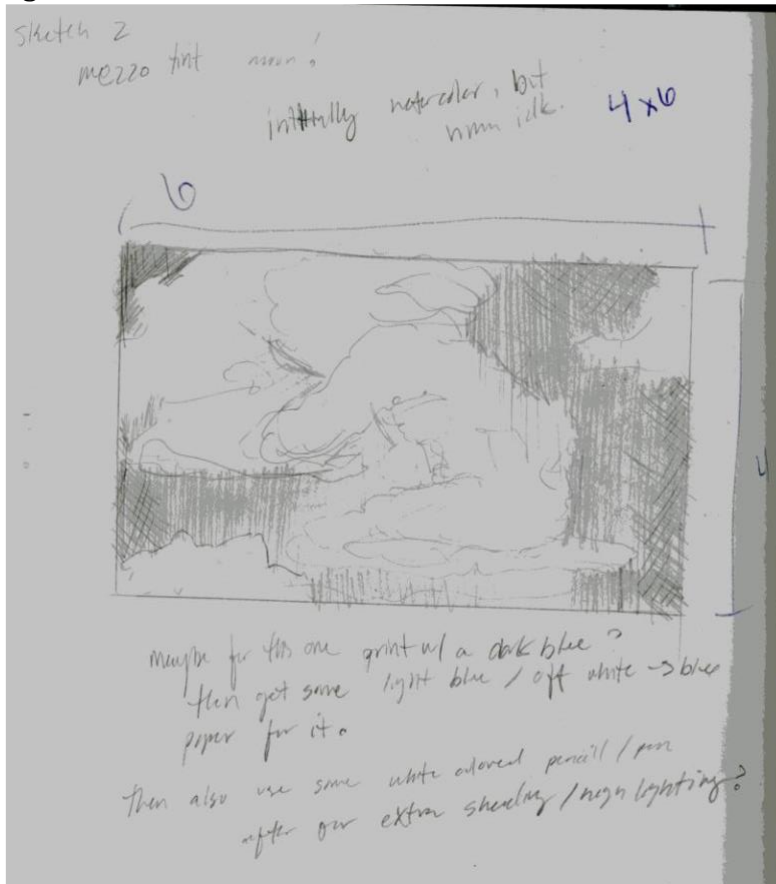 sketch 2
mezzo tint moon?
initially watercolor, but
hmm idk.
4x6
6
4
maybe for this one print w/ a dark blue?
then get some light blue / off white → blue
paper for it.
then also use some white colored pencil / pen
after for extra shading / highlighting?